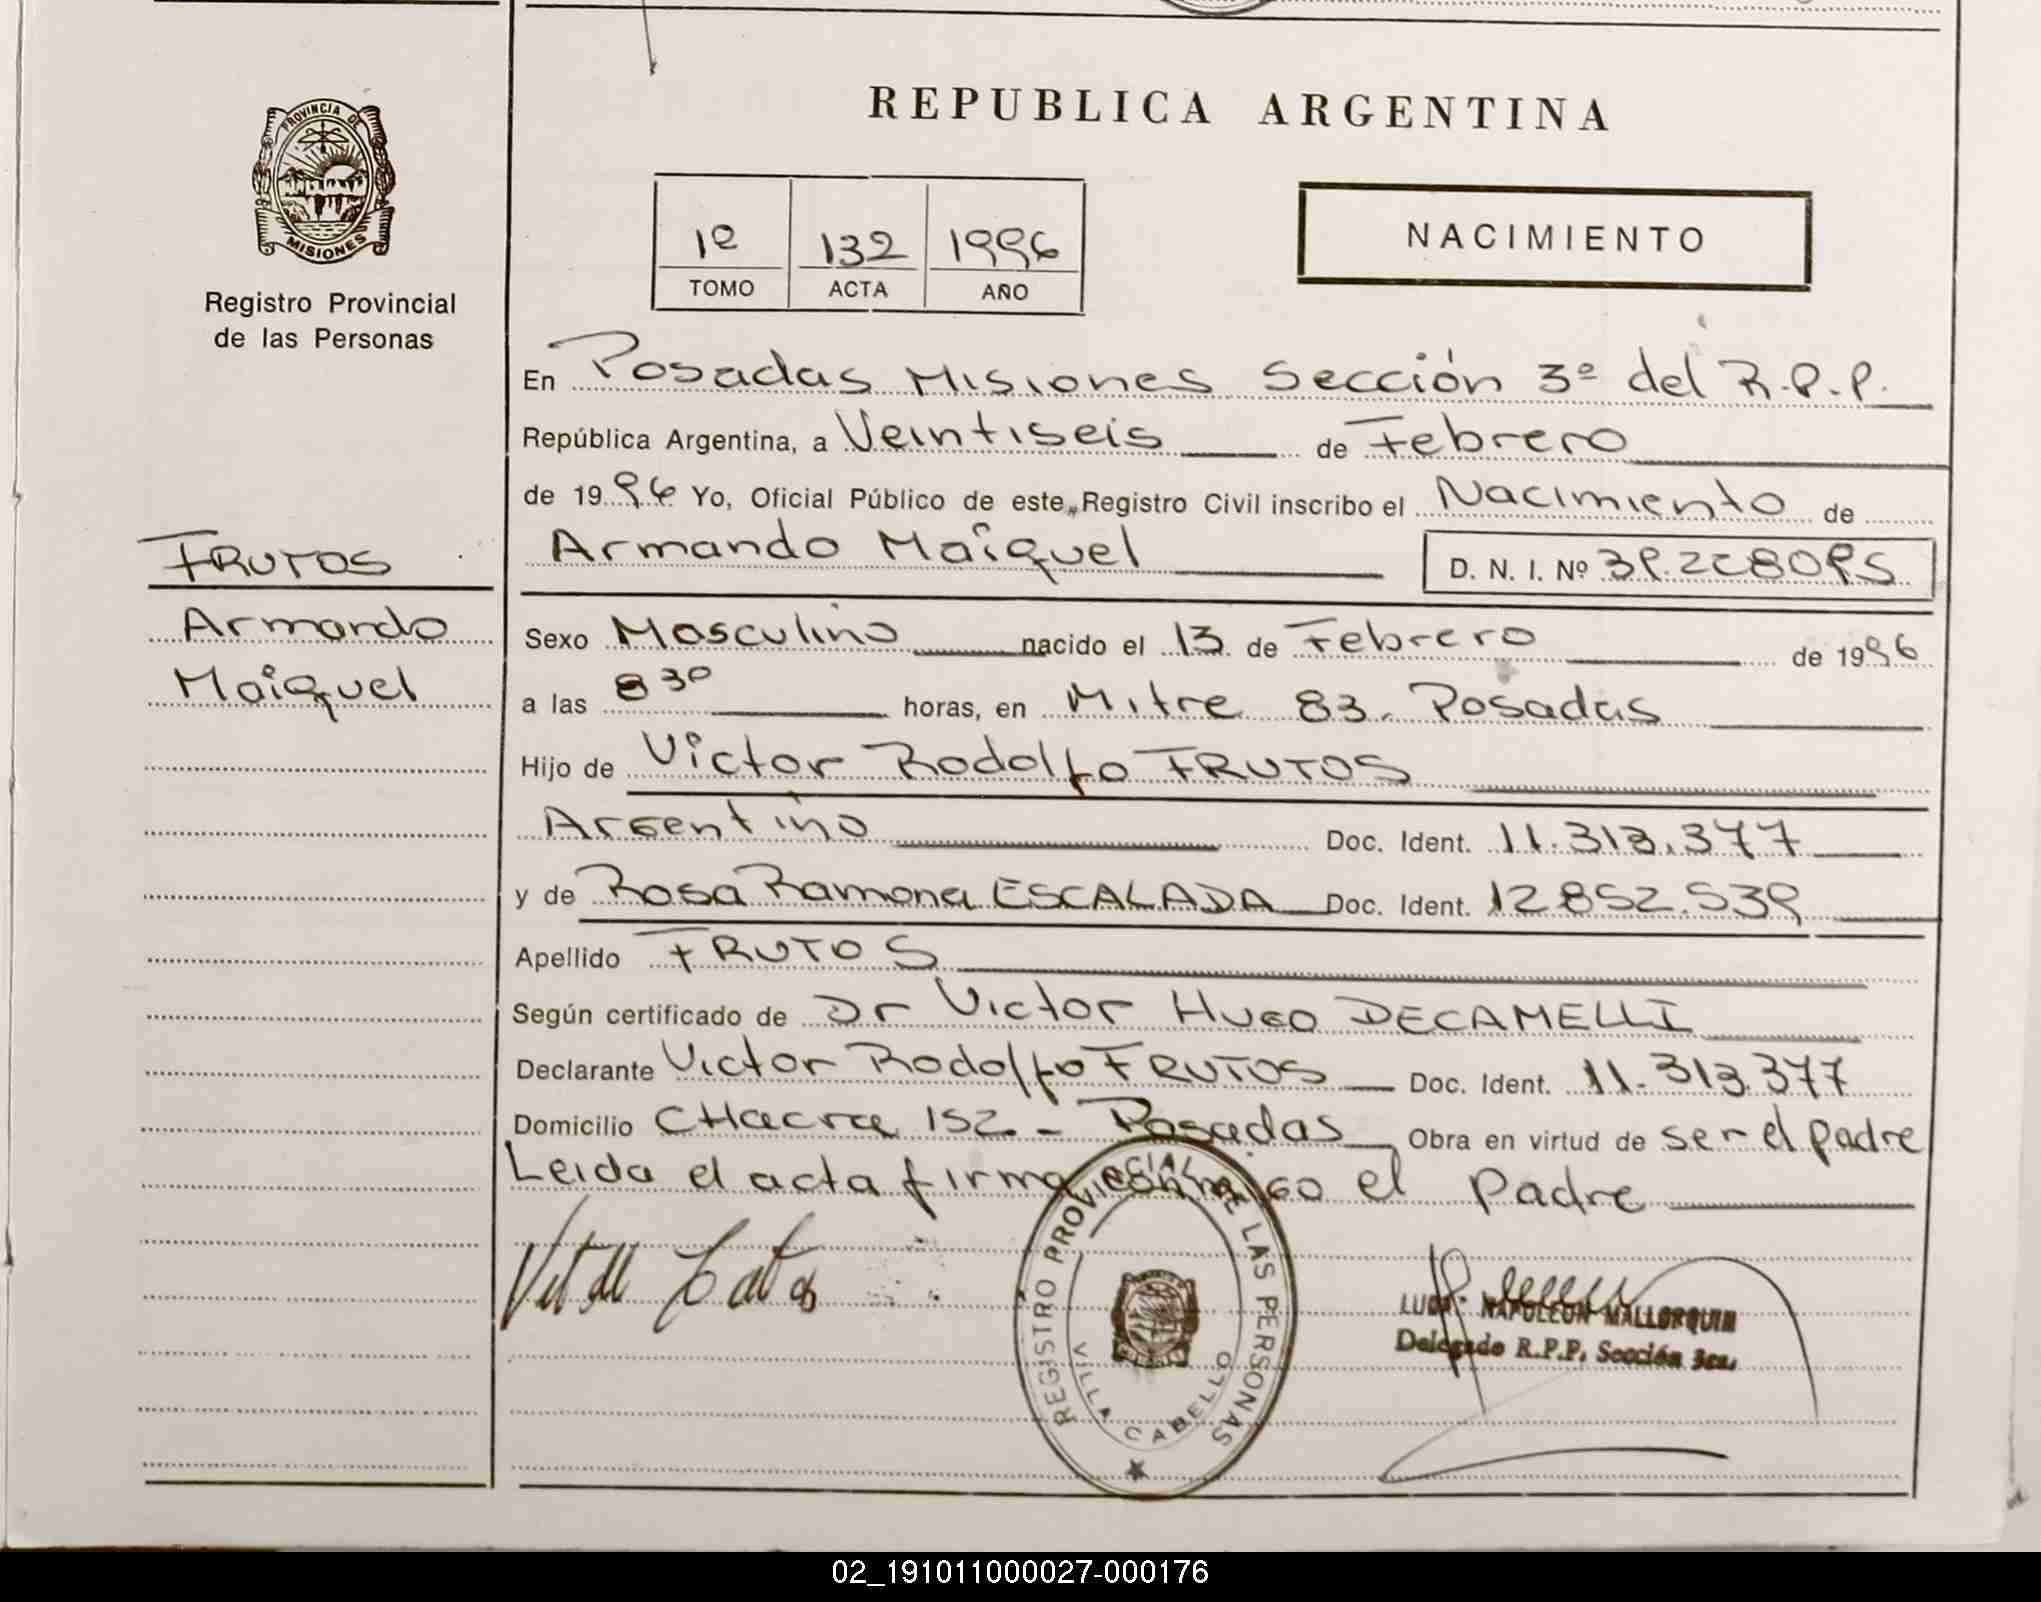 REPUBLICA ARGENTINA
PROVINCIA DE MISIONES
Registro Provincial
de las Personas
1º 132 1996
TOMO ACTA AÑO
NACIMIENTO
En Posadas Misiones Sección 3º del R.P.P.
República Argentina, a Veintiseis de Febrero
de 1996 Yo, Oficial Público de este Registro Civil inscribo el Nacimiento de
Armando Maiquel D. N. I. Nº
FRUTOS
Armando
Maiquel
Sexo Masculino nacido el 13 de Febrero de 1996
a las 8 30 horas, en Mitre 83. Posadas
Hijo de Victor Rodolfo FRUTOS
Argentino Doc. Ident. 11.313.377
y de Rosa Ramona ESCALADA Doc. Ident. 12852.539
Apellido FRUTOS
Según certificado de Dr Victor Hugo DECAMELLI
Declarante Victor Rodolfo FRUTOS Doc. Ident. 11.313.377
Domicilio CHacra 152 - Posadas Obra en virtud de ser el padre
Leida el acta firma conmigo el padre
REGISTRO PROVINCIAL DE LAS PERSONAS
VILLA CABELLO
NAPOLEON MALLORQUIN
Delegado R.P.P. Sección 3ra.
02_191011000027-000176